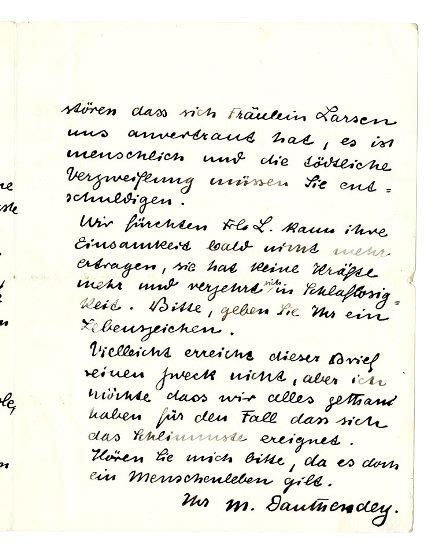 stören dass sich Fräulein Larsen
uns anvertraut hat, es ist
menschlich und die tödtliche
Verzweiflung müssen Sie ent-
schuldigen.
Wir fürchten Frl. L. kann ihre
Einsamkeit bald nicht mehr
ertragen, sie hat keine Kräfte
mehr und verzehrt sich in Schlaflosig-
keit. Bitte, geben Sie Ihr ein
Lebenszeichen.
Vielleicht erreicht dieser Brief
seinen Zweck nicht, aber ich
möchte dass wir alles gethan
haben für den Fall dass sich
das Schlimmste ereignet.
Hören Sie mich bitte, da es doch
ein Menschenleben gilt.
Ihr M. Dauthendey.